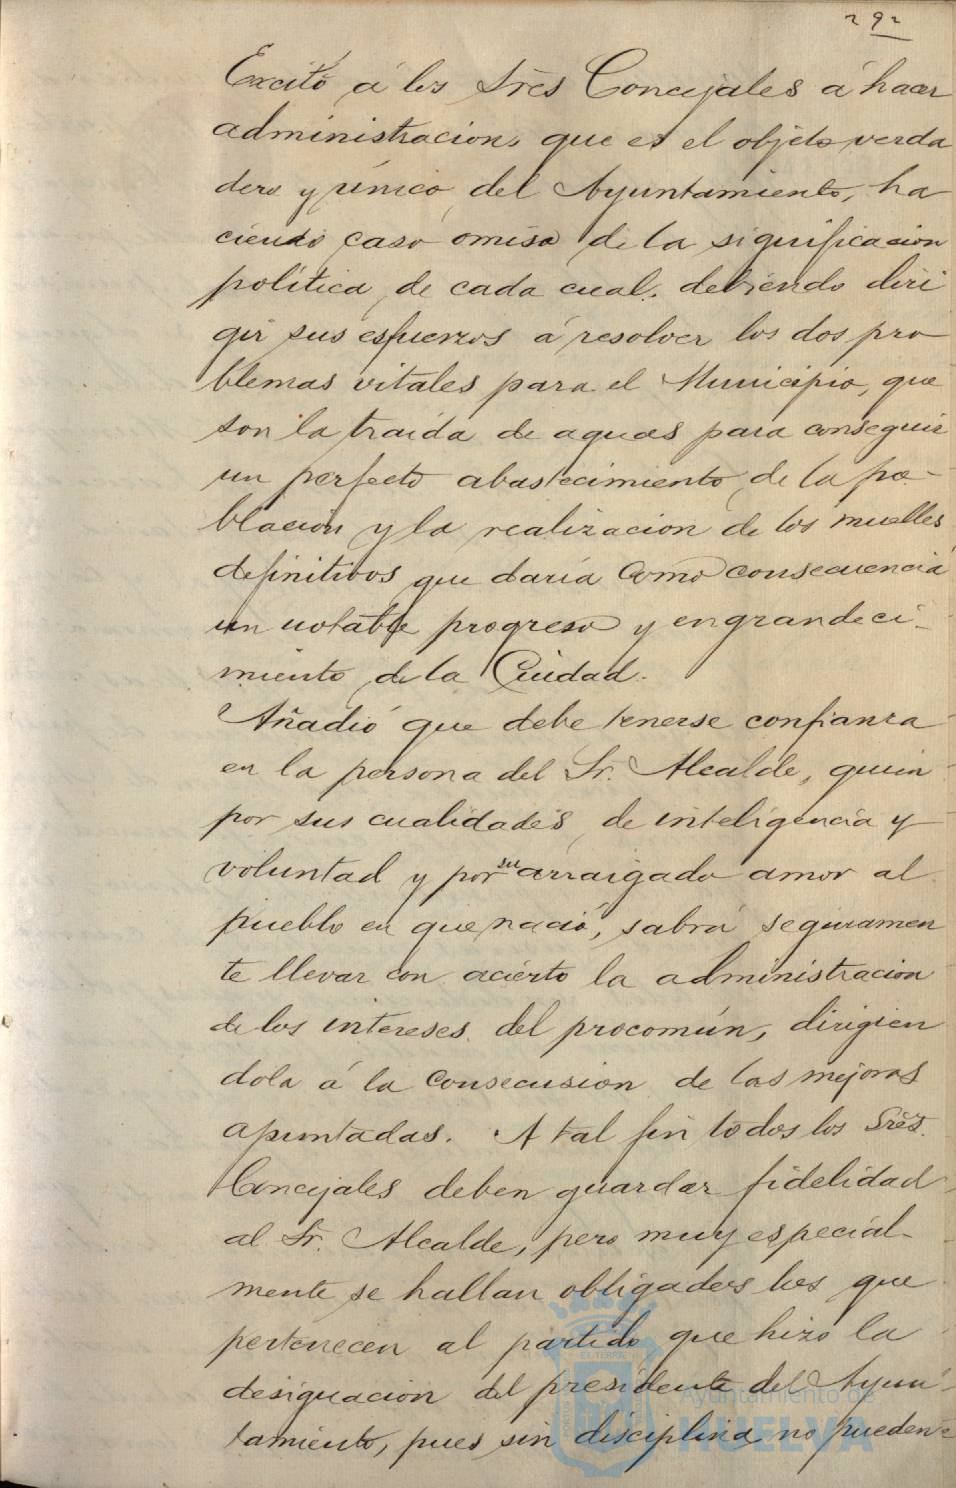 292
Excitó á los Sres Concejales á hacer
administracion, que es el objeto verda
dero y único del Ayuntamiento, ha
ciendo caso omiso de la significacion
política de cada cual, debiendo diri
gir sus esfuerzos á resolver los dos pro
blemas vitales para el Municipio, que
son la traida de aguas para conseguir
un perfecto abastecimiento de la po-
blación y la realizacion de los muelles
definitivos que daría como consecuencia
un notable progreso y engrandeci-
miento de la Ciudad.
Añadió que debe tenerse confianza
en la persona del Sr. Alcalde, quien
por sus cualidades de inteligencia y
voluntad y por su arraigado amor al
pueblo en que nació, sabrá seguramen
te llevar con acierto la administracion
de los intereses del procomún, dirigien
dola á la consecusion de las mejoras
apuntadas. A tal fin todos los Sres.
Concejales deben guardar fidelidad
al Sr. Alcalde, pero muy especial-
mente se hallan obligados los que
pertenecen al partido que hizo la
designacion del presidente del Ayun-
tamiento, pues sin disciplina no pueden
Ayuntamiento de
HUELVA